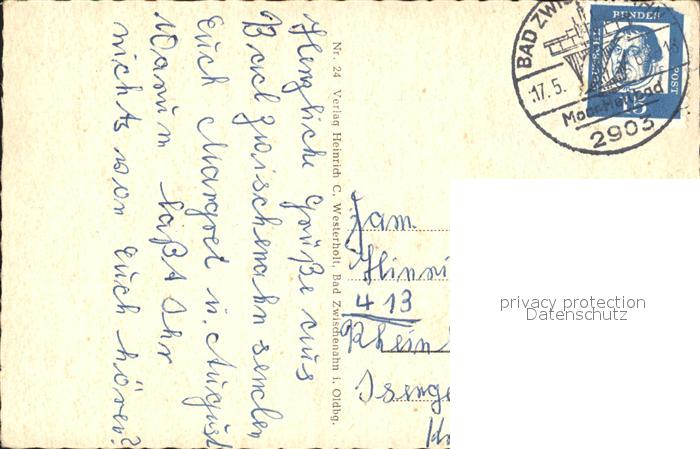 Herzliche Grüße aus
Bad Zwischenahn senden
Euch Margret u. August
Warum laßt Ihr
nichts von Euch hören?
Nr. 24 Verlag Heinrich C. Westerholt, Bad Zwischenahn i. Oldbg.
BAD ZWISCHENAHN
17.5.
Moor-Heilbad
2903
BUNDES
POST
15
Fam.
Hinri
413
Rhein
Isenge
privacy protection
Datenschutz